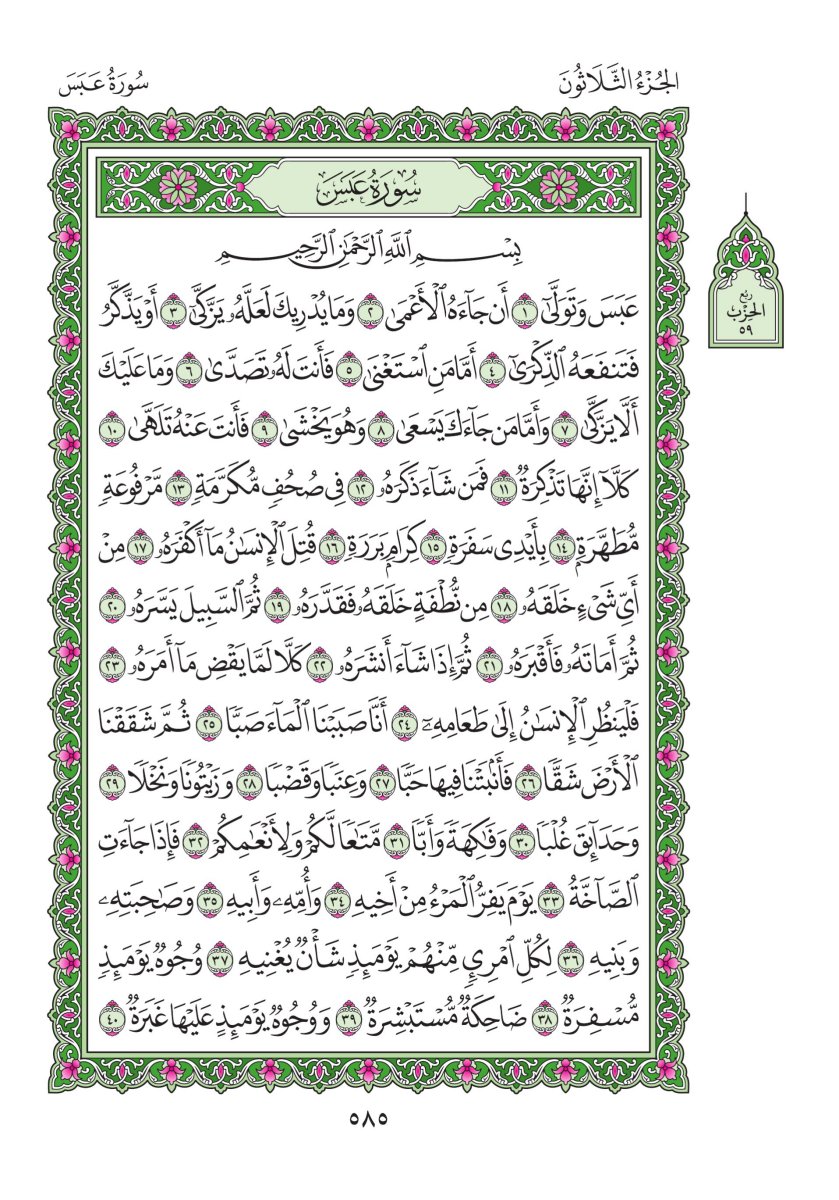 الجُزْءُ الثَّلَاثُونَ
سُورَةُ عَبَسَ
سُورَةُ عَبَسَ
رُبْعُ
الحِزْبِ
٥٩
بِسْمِ ٱللَّهِ ٱلرَّحْمَٰنِ ٱلرَّحِيمِ
عَبَسَ وَتَوَلَّىٰٓ ١ أَن جَآءَهُ ٱلْأَعْمَىٰ ٢ وَمَا يُدْرِيكَ لَعَلَّهُۥ يَزَّكَّىٰٓ ٣ أَوْ يَذَّكَّرُ
فَتَنفَعَهُ ٱلذِّكْرَىٰٓ ٤ أَمَّا مَنِ ٱسْتَغْنَىٰ ٥ فَأَنتَ لَهُۥ تَصَدَّىٰ ٦ وَمَا عَلَيْكَ
أَلَّا يَزَّكَّىٰ ٧ وَأَمَّا مَن جَآءَكَ يَسْعَىٰ ٨ وَهُوَ يَخْشَىٰ ٩ فَأَنتَ عَنْهُ تَلَهَّىٰ ١٠
كَلَّآ إِنَّهَا تَذْكِرَةٌ ١١ فَمَن شَآءَ ذَكَرَهُۥ ١٢ فِى صُحُفٍ مُّكَرَّمَةٍ ١٣ مَّرْفُوعَةٍ
مُّطَهَّرَةٍۭ ١٤ بِأَيْدِى سَفَرَةٍ ١٥ كِرَامٍۭ بَرَرَةٍ ١٦ قُتِلَ ٱلْإِنسَٰنُ مَآ أَكْفَرَهُۥ ١٧ مِنْ
أَىِّ شَىْءٍ خَلَقَهُۥ ١٨ مِن نُّطْفَةٍ خَلَقَهُۥ فَقَدَّرَهُۥ ١٩ ثُمَّ ٱلسَّبِيلَ يَسَّرَهُۥ ٢٠
ثُمَّ أَمَاتَهُۥ فَأَقْبَرَهُۥ ٢١ ثُمَّ إِذَا شَآءَ أَنشَرَهُۥ ٢٢ كَلَّا لَمَّا يَقْضِ مَآ أَمَرَهُۥ ٢٣
فَلْيَنظُرِ ٱلْإِنسَٰنُ إِلَىٰ طَعَامِهِۦٓ ٢٤ أَنَّا صَبَبْنَا ٱلْمَآءَ صَبًّا ٢٥ ثُمَّ شَقَقْنَا
ٱلْأَرْضَ شَقًّا ٢٦ فَأَنۢبَتْنَا فِيهَا حَبًّا ٢٧ وَعِنَبًا وَقَضْبًا ٢٨ وَزَيْتُونًا وَنَخْلًا ٢٩
وَحَدَآئِقَ غُلْبًا ٣٠ وَفَٰكِهَةً وَأَبًّا ٣١ مَّتَٰعًا لَّكُمْ وَلِأَنْعَٰمِكُمْ ٣٢ فَإِذَا جَآءَتِ
ٱلصَّآخَّةُ ٣٣ يَوْمَ يَفِرُّ ٱلْمَرْءُ مِنْ أَخِيهِ ٣٤ وَأُمِّهِۦ وَأَبِيهِ ٣٥ وَصَٰحِبَتِهِۦ
وَبَنِيهِ ٣٦ لِكُلِّ ٱمْرِئٍ مِّنْهُمْ يَوْمَئِذٍ شَأْنٌ يُغْنِيهِ ٣٧ وُجُوهٌ يَوْمَئِذٍ
مُّسْفِرَةٌ ٣٨ ضَاحِكَةٌ مُّسْتَبْشِرَةٌ ٣٩ وَوُجُوهٌ يَوْمَئِذٍ عَلَيْهَا غَبَرَةٌ ٤٠
٥٨٥